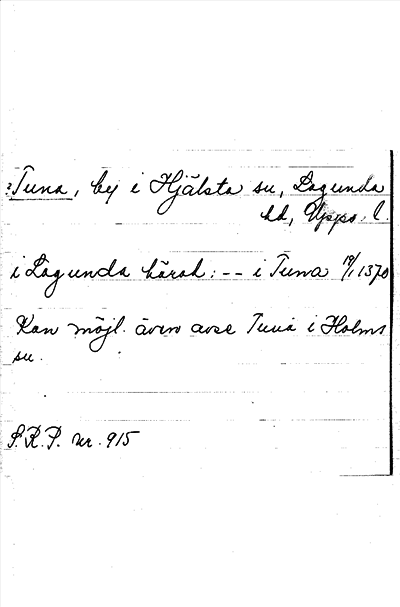 ? Tuna, by i Hjälsta sn, Lagunda
hd, Upps. l.
i Lagunda härad: -- i Tuna 19/1 1370
Kan möjl. även avse Tuna i Holms
sn.
S.R.P. nr. 915